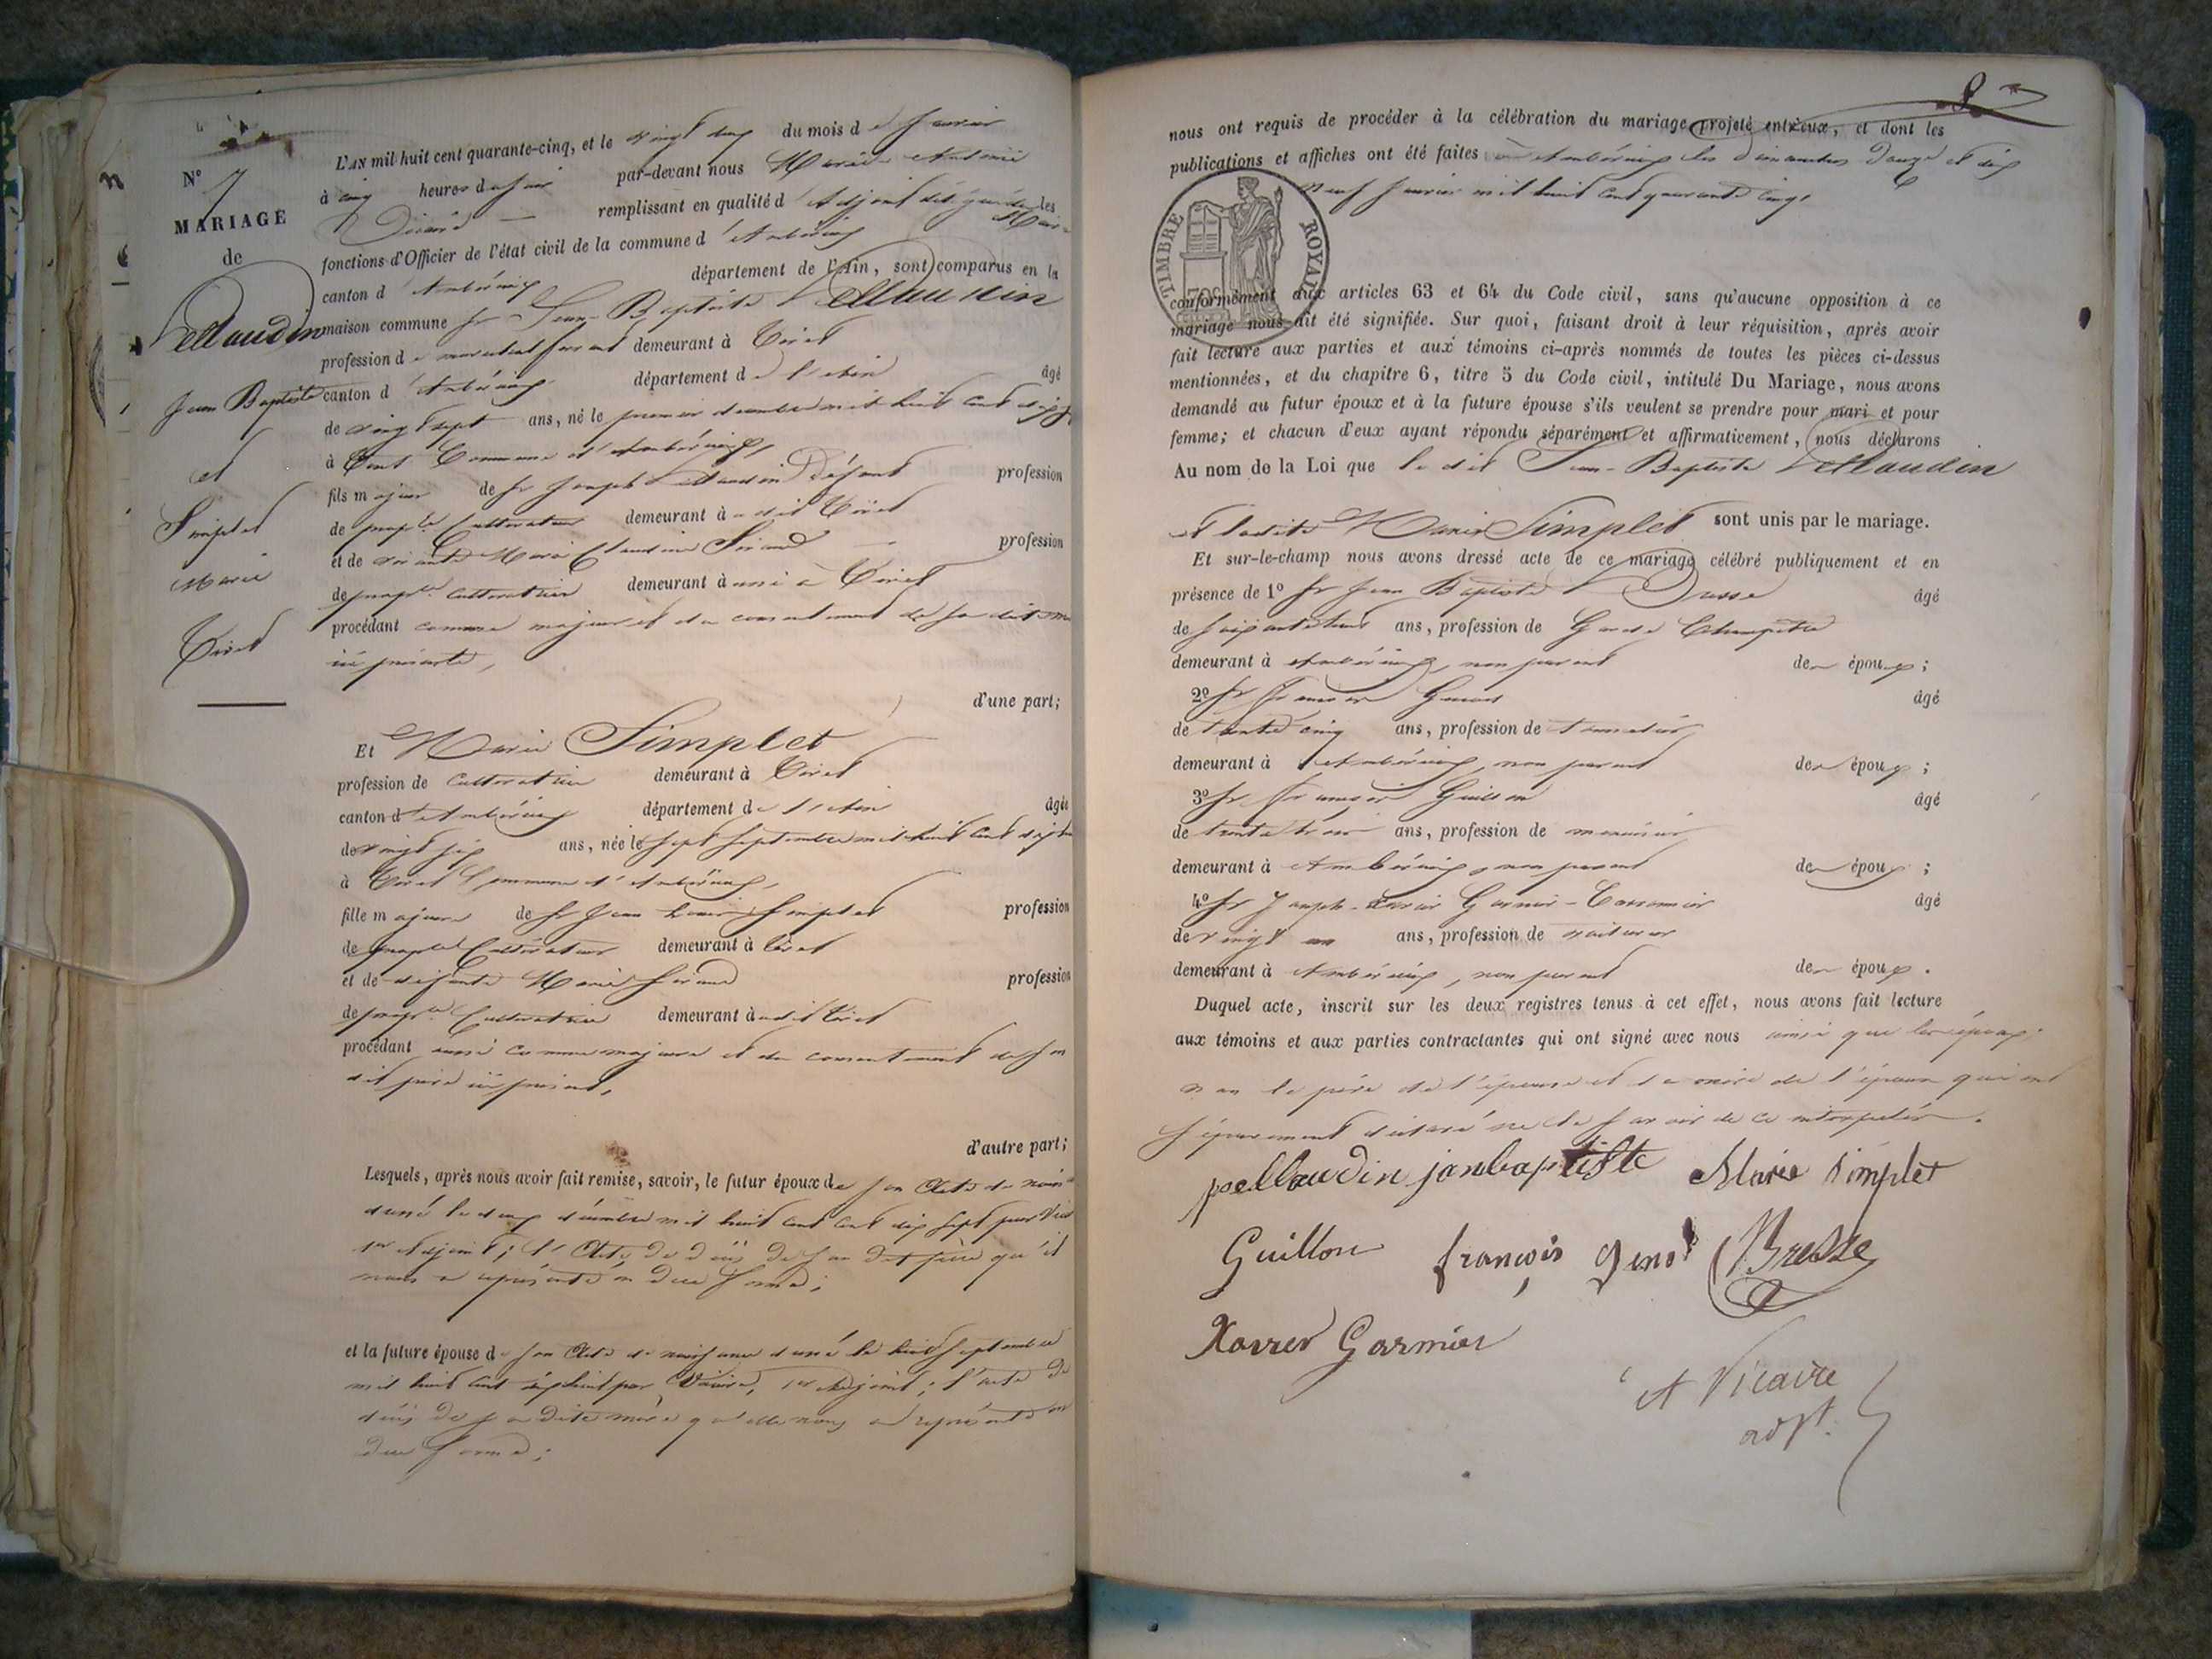 N° 7
MARIAGE
de
Pellaudin
Jean Baptiste
et
Simplet
Marie
Tiret
L'AN mil huit cent quarante-cinq, et le vingt deux du mois de Janvier
à cinq heures du soir par-devant nous Marie Antoine
Vicaire remplissant en qualité d'Adjoint délégué les
fonctions d'Officier de l'état civil de la commune d'Ambérieux
canton d'Ambérieux département de l'Ain, sont comparus en la
maison commune Sr Jean-Baptiste Pellaudin
profession de marechal ferrant demeurant à Tiret
canton d'Ambérieux département de l'Ain âgé
de vingt sept ans, né le premier decembre mil huit cent dix sept
à Tiret Commune d'Ambérieux,
fils majeur de Sr Joseph Pellaudin Défunt profession
de propre Cultivateur demeurant à dit Tiret
et de vivante Marie Claudine profession
de propre cultivatrice demeurant à Tiret
procédant comme majeur et du consentement de sa dite mère
ici présente,
d'une part;
Et Marie Simplet
profession de Cultivatrice demeurant à Tiret
canton d'Ambérieux département de l'Ain âgée
de vingt six ans, née le sept septembre mil huit cent dix huit
à Tiret Commune d'Ambérieux,
fille majeure de Sr Jean Louis Simplet profession
de propre Cultivateur demeurant à Tiret
et de défunte Marie profession
de propre Cultivatrice demeurant à udit Tiret
procédant aussi comme majeure et du consentement de son
dit père ici présent,
d'autre part;
Lesquels, après nous avoir fait remise, savoir, le futur époux de son Acte de naiss
dressé le deux décembre mil huit cent cent dix sept par
1er Adjoint; l'Acte de décès de son dit père qu'il
nous a représenté en due forme;
et la future épouse de son Acte de naissance dressé le huit septembre
mil huit cent dix huit par Vicaire, 1er Adjoint; l'acte de
décès de sa dite mère qu'elle nous a représenté en
due forme;
8
nous ont requis de procéder à la célébration du mariage projeté entr'eux, et dont les
publications et affiches ont été faites à Ambérieux les dimanches douze et dix
neuf Janvier mil huit cent quarante cinq,
TIMBRE ROYAL
conformément aux articles 63 et 64 du Code civil, sans qu'aucune opposition à ce
mariage nous ait été signifiée. Sur quoi, faisant droit à leur réquisition, après avoir
fait lecture aux parties et aux témoins ci-après nommés de toutes les pièces ci-dessus
mentionnées, et du chapitre 6, titre 5 du Code civil, intitulé Du Mariage, nous avons
demandé au futur époux et à la future épouse s'ils veulent se prendre pour mari et pour
femme; et chacun d'eux ayant répondu séparément et affirmativement, nous déclarons
Au nom de la Loi que le dit Jean-Baptiste Pellaudin
et ladite Marie Simplet sont unis par le mariage.
Et sur-le-champ nous avons dressé acte de ce mariage célébré publiquement et en
présence de 1° Sr Jean Baptiste Bresse âgé
de ans, profession de Garde Champêtre
demeurant à Ambérieux, non parent des époux;
2° Sr François Genod âgé
de trente cinq ans, profession de
demeurant à Ambérieux, non parent des époux;
3° Sr François Guillon âgé
de trente trois ans, profession de menuisier
demeurant à Ambérieux, non parent des époux;
4° Sr Joseph-Xavier Garnier- âgé
de vingt un ans, profession de voiturier
demeurant à Ambérieux, non parent des époux.
Duquel acte, inscrit sur les deux registres tenus à cet effet, nous avons fait lecture
aux témoins et aux parties contractantes qui ont signé avec nous ainsi que les époux.
non le père de l'épouse et la mère de l'époux qui ont
séparément déclaré ne le savoir de ce interpelés.
pellaudin janbaptiste Marie Simplet
Guillon françois genod Bresse
Xavier Garnier
A Vicaire
adjt.